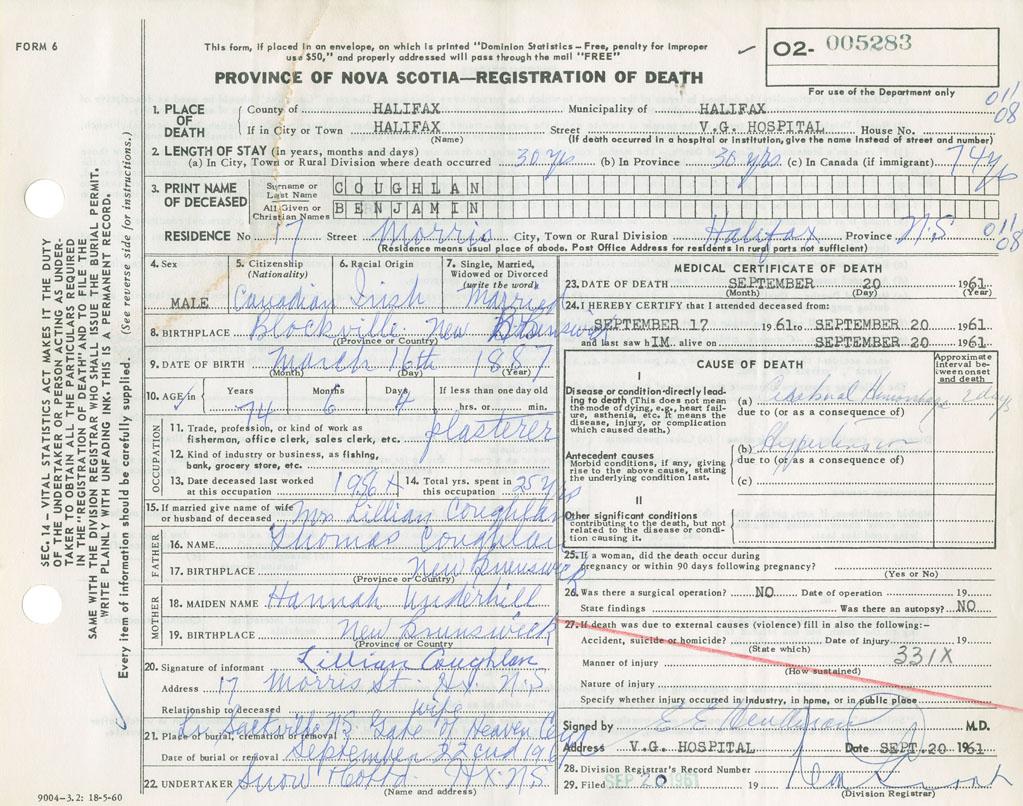 FORM 6
This form, if placed in an envelope, on which is printed "Dominion Statistics – Free, penalty for improper
use $50," and properly addressed will pass through the mail "FREE"
PROVINCE OF NOVA SCOTIA—REGISTRATION OF DEATH
02- 005283
For use of the Department only
011
08
1. PLACE OF DEATH
County of HALIFAX Municipality of HALIFAX
If in City or Town HALIFAX Street V.G. HOSPITAL House No.
(Name) (If death occurred in a hospital or institution, give the name instead of street and number)
2. LENGTH OF STAY (in years, months and days)
(a) In City, Town or Rural Division where death occurred 30 yrs (b) In Province 30 yrs. (c) In Canada (if immigrant) 74 yrs
3. PRINT NAME OF DECEASED
Surname or Last Name COUGHLAN
All Given or Christian Names BENJAMIN
RESIDENCE No 17 Street Morris City, Town or Rural Division Halifax Province N.S
011
08
(Residence means usual place of abode. Post Office Address for residents in rural parts not sufficient)
4. Sex MALE
5. Citizenship (Nationality) Canadian
6. Racial Origin Irish
7. Single, Married, Widowed or Divorced (write the word) Married
8. BIRTHPLACE Blockville New Brunswick
(Province or Country)
9. DATE OF BIRTH March 16th 1887
(Month) (Day) (Year)
10. AGE in Years 74 Months 6 Days 4 If less than one day old hrs. or min.
OCCUPATION
11. Trade, profession, or kind of work as fisherman, office clerk, sales clerk, etc. plasterer
12. Kind of industry or business, as fishing, bank, grocery store, etc.
13. Date deceased last worked at this occupation
14. Total yrs. spent in this occupation 25 yrs
15. If married give name of wife or husband of deceased Mrs Lillian Coughlan
FATHER
16. NAME Thomas Coughlan
17. BIRTHPLACE New Brunswick
(Province or Country)
MOTHER
18. MAIDEN NAME Hannah Underhill
19. BIRTHPLACE New Brunswick
(Province or Country
20. Signature of informant Lillian Coughlan
Address 17 Morris St. Hx N.S
Relationship to deceased wife
21. Place of burial, cremation or removal Lr Sackville N.S Gate of Heaven Cem
Date of burial or removal September 22nd 1961
22. UNDERTAKER Snow Co Ltd Hx. N.S
(Name and address)
9004-3.2: 18-5-60
MEDICAL CERTIFICATE OF DEATH
23. DATE OF DEATH SEPTEMBER 20 1961
(Month) (Day) (Year)
24. I HEREBY CERTIFY that I attended deceased from:
SEPTEMBER 17 1961 to SEPTEMBER 20 1961
and last saw hIM alive on SEPTEMBER 20 1961
CAUSE OF DEATH
Approximate interval between onset and death
I
Disease or condition directly leading to death (This does not mean the mode of dying, e.g., heart failure, asthenia, etc. It means the disease, injury, or complication which caused death.)
(a) Cerebral Hemorrhage 2 days
due to (or as a consequence of)
Antecedent causes
Morbid conditions, if any, giving rise to the above cause, stating the underlying condition last.
(b) Hypertension
due to (or as a consequence of)
(c)
II
Other significant conditions contributing to the death, but not related to the disease or condition causing it.
25. If a woman, did the death occur during pregnancy or within 90 days following pregnancy?
(Yes or No)
26. Was there a surgical operation? NO Date of operation 19
State findings Was there an autopsy? NO
27. If death was due to external causes (violence) fill in also the following:-
Accident, suicide or homicide? Date of injury 19
(State which)
331X
Manner of injury
(How sustained)
Nature of injury
Specify whether injury occurred in industry, in home, or in public place
Signed by M.D.
Address V.G. HOSPITAL Date SEPT. 20 1961
28. Division Registrar's Record Number
29. Filed SEP 20 1961 19
(Division Registrar)
SEC. 14 – VITAL STATISTICS ACT MAKES IT THE DUTY
OF THE UNDERTAKER OR PERSON ACTING AS UNDER-
TAKER TO OBTAIN ALL THE PARTICULARS REQUIRED
IN THE "REGISTRATION OF DEATH" AND TO FILE THE
SAME WITH THE DIVISION REGISTRAR WHO SHALL ISSUE THE BURIAL PERMIT.
WRITE PLAINLY WITH UNFADING INK. THIS IS A PERMANENT RECORD.
Every item of information should be carefully supplied. (See reverse side for instructions.)